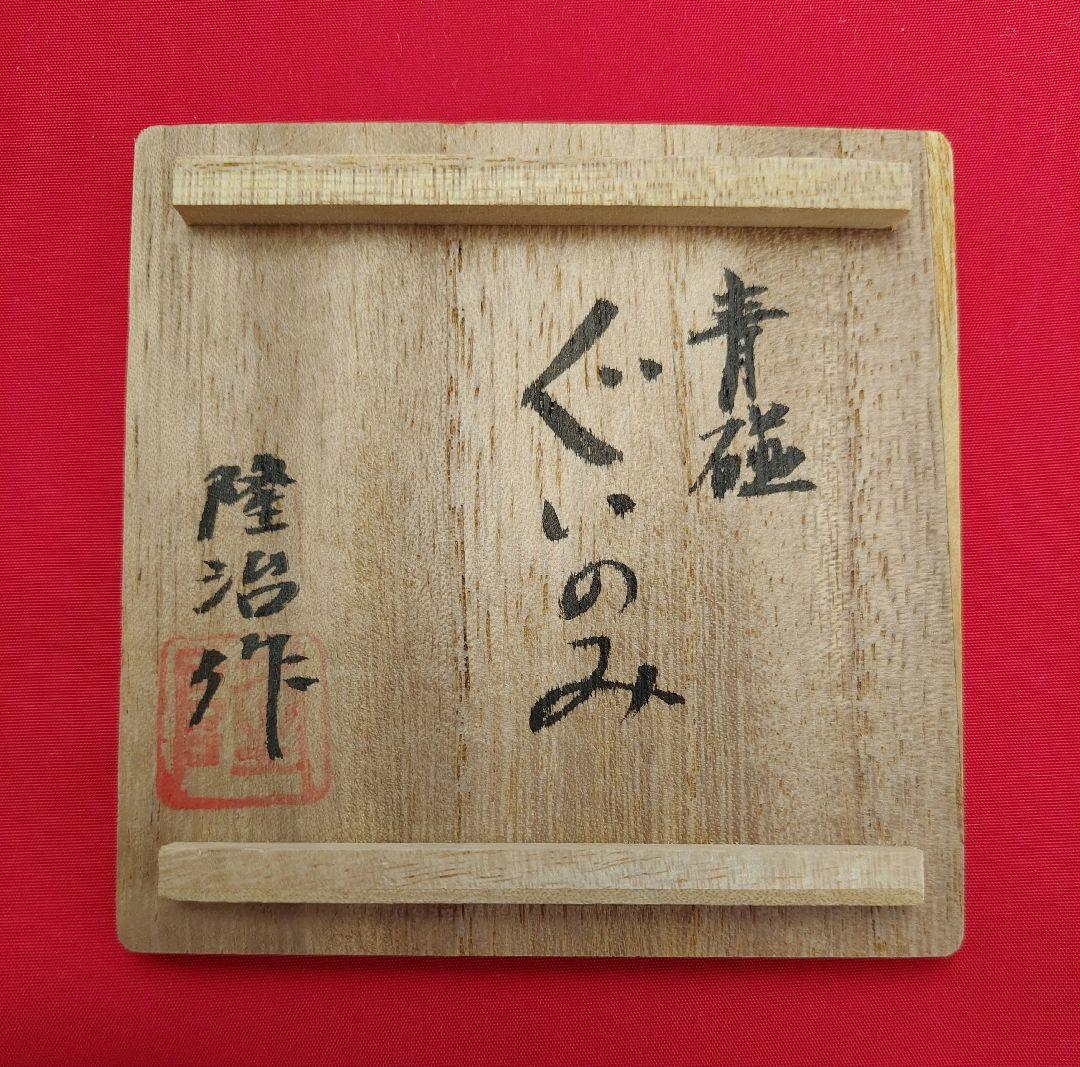 青磁
ぐいのみ
隆治作